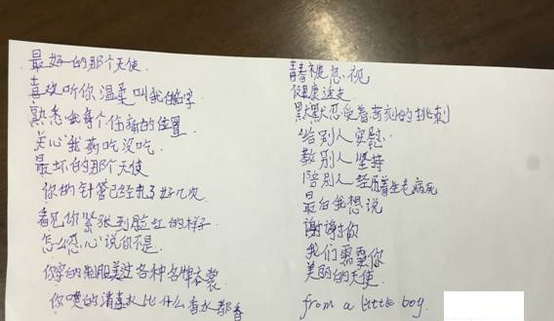 最好的那个天使
喜欢听你温柔叫我的名字
熟悉我每个伤痛的位置
关心我药吃没吃
最坏的那个天使
你的针管已经扎了好几次
看见你紧张到脸红的样子
怎么忍心说你不是
你穿的制服美过各种名牌衣裳
你喷的消毒水比什么香水都香
青春被忽视
健康透走
默默忍受着苛刻的挑剌
给别人安慰
教别人坚持
陪别人经历着生老病死
最后我想说
谢谢你
我们需要你
美丽的天使
from a little boy.